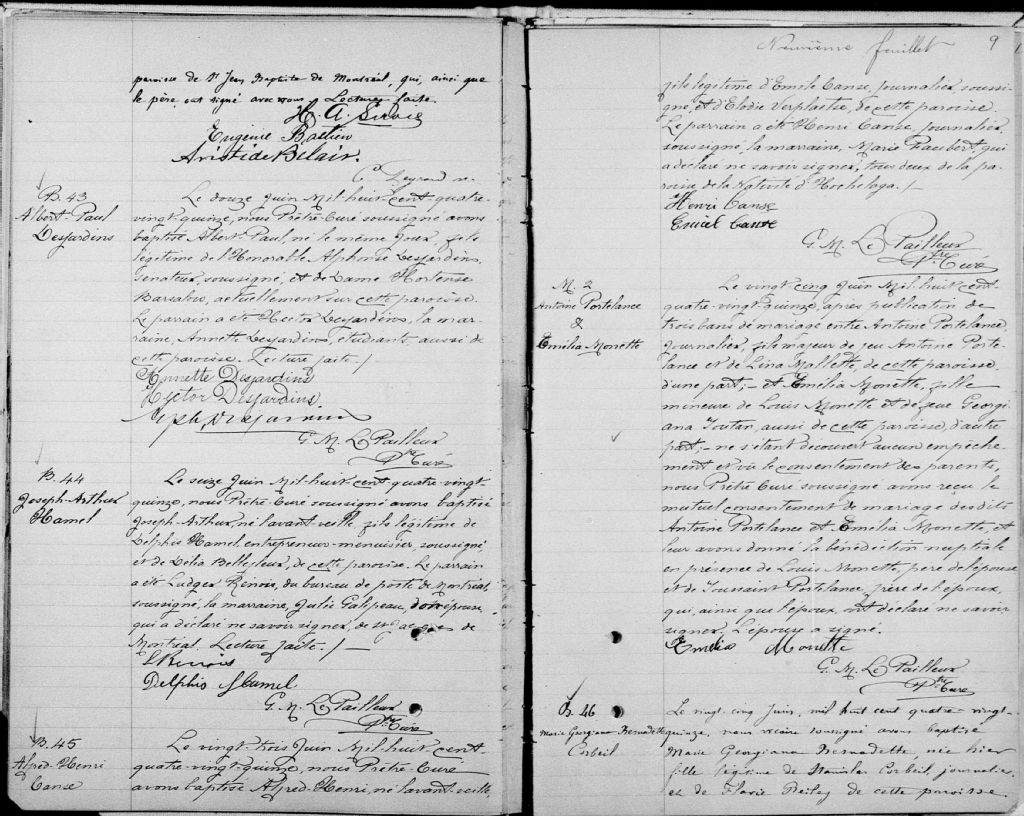 paroisse de St Jean Baptiste de Montréal, qui, ainsi que
le père ont signé avec nous. Lecture faite.
Eugénie Bastien
Aristide Bélair.
B. 43
Albert-Paul
Desjardins
Le douze Juin Mil-huit-cent quatre-
vingt-quinze, nous Prêtre Curé soussigné avons
baptisé Albert-Paul, né le même jour, fils
légitime de l'Honorable Alphonse Desjardins,
Sénateur, soussigné, et de Dame Hortense
Barsalou, actuellement sur cette paroisse.
Le parrain a été Hector Desjardins, la mar-
raine, Annette Desjardins, étudiants aussi de
cette paroisse. Lecture faite. /
Annette Desjardins
Hector Desjardins
Alph. Desjardins
G. M. Le Pailleur
Ptre Curé
B. 44
Joseph-Arthur
Hamel
Le seize Juin Mil-huit-cent quatre-vingt
quinze, nous Prêtre Curé soussigné avons baptisé
Joseph-Arthur, né l'avant-veille, fils légitime de
Delphis Hamel, entrepreneur-menuisier, soussigné,
et de Délia Bellefleur, de cette paroisse. Le parrain
a été Ludger Renois, du bureau de poste de Montréal,
soussigné, la marraine, Julie Galipeau, son épouse,
qui a déclaré ne savoir signer, de St Jacques de
Montréal. Lecture faite. / —
Delphis Hamel
G. M. Le Pailleur
Ptre Curé
B. 45
Alfred-Henri
Canse
Le vingt-trois Juin Mil-huit-cent
quatre-vingt-quinze, nous Prêtre Curé
avons baptisé Alfred-Henri, né l'avant-veille,
Neuvième feuillet 9
fils légitime d'Emile Canse, Journalier, soussi-
gné, et d'Elodie Verplastre, de cette paroisse.
Le parrain a été Henri Canse, Journalier,
soussigné, la marraine, Marie Flaubert, qui
a déclaré ne savoir signer, tous deux de la pa-
roisse de la Nativité d'Hochelaga. /
Henri Canse
Emiel Canse
G. M. Le Pailleur
Ptre Curé
M. 2
Antoine Portelance
&
Emélia Monette
Le vingt-cinq Juin Mil-huit-cent
quatre-vingt-quinze, après publication de
trois bans de mariage entre Antoine Portelance,
Journalier, fils majeur de feu Antoine Porte-
lance et de Lina Mallette, de cette paroisse,
d'une part; - et Emélia Monette, fille
mineure de Louis Monette et de feue Georgi-
ana Joutar, aussi de cette paroisse, d'autre
part; - ne s'étant découvert aucun empêche-
ment et vu le consentement des parents,
nous Prêtre Curé soussigné avons reçu le
mutuel consentement de mariage des dits
Antoine Portelance et Emélia Monette, et
leur avons donné la bénédiction nuptiale
en présence de Louis Monette, père de l'épouse
et de Toussaint Portelance, frère de l'époux,
qui, ainsi que l'époux, ont déclaré ne savoir
signer. L'épouse a signé.
Emélia Monette
G. M. Le Pailleur
Ptre Curé
B. 46
Marie Georgiana Bernadette
Corbeil
Le vingt-cinq Juin, mil huit cent quatre-vingt-
quinze, nous vicaire soussigné avons baptisé
Marie Georgiana Bernadette, née hier
fille légitime de Stanislas Corbeil, journalier
et de Flavie Reiley de cette paroisse.